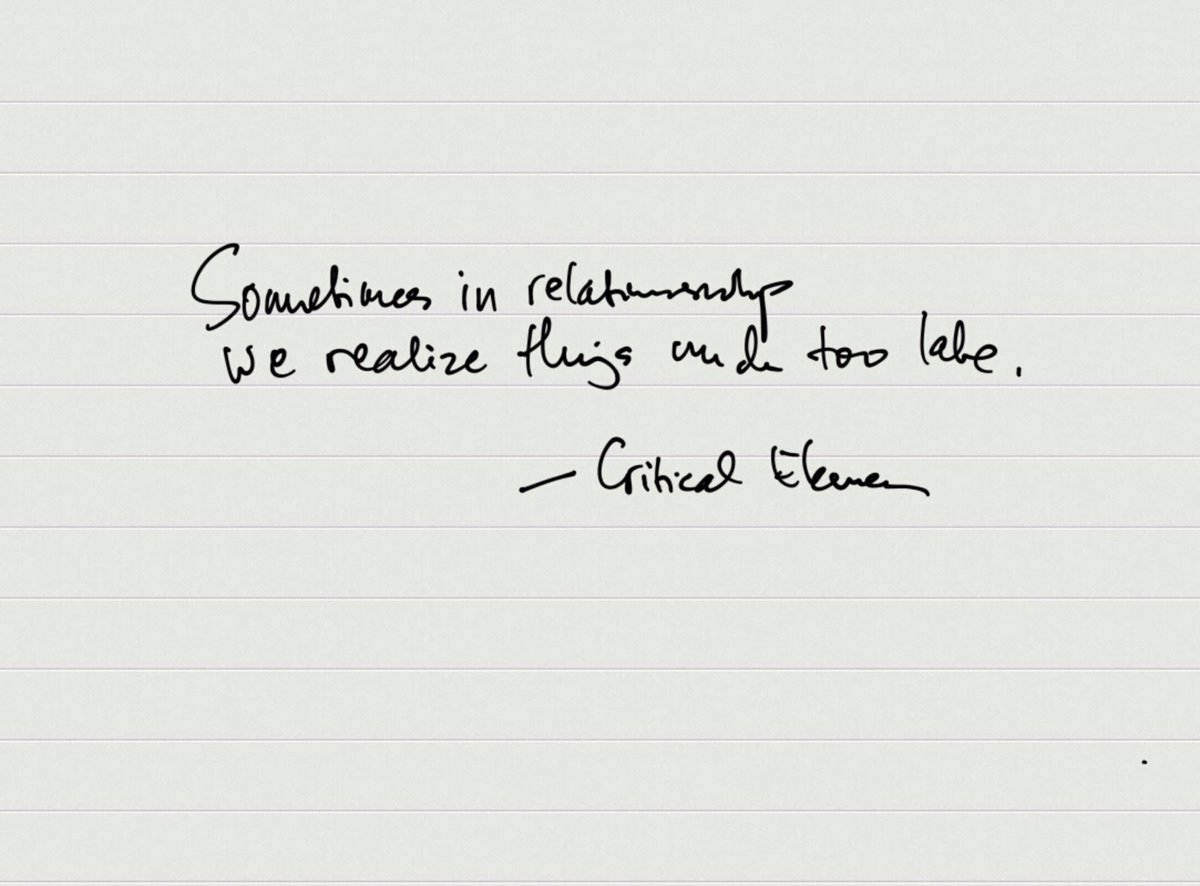 Sometimes in relationship
we realize things too late.
— Critical